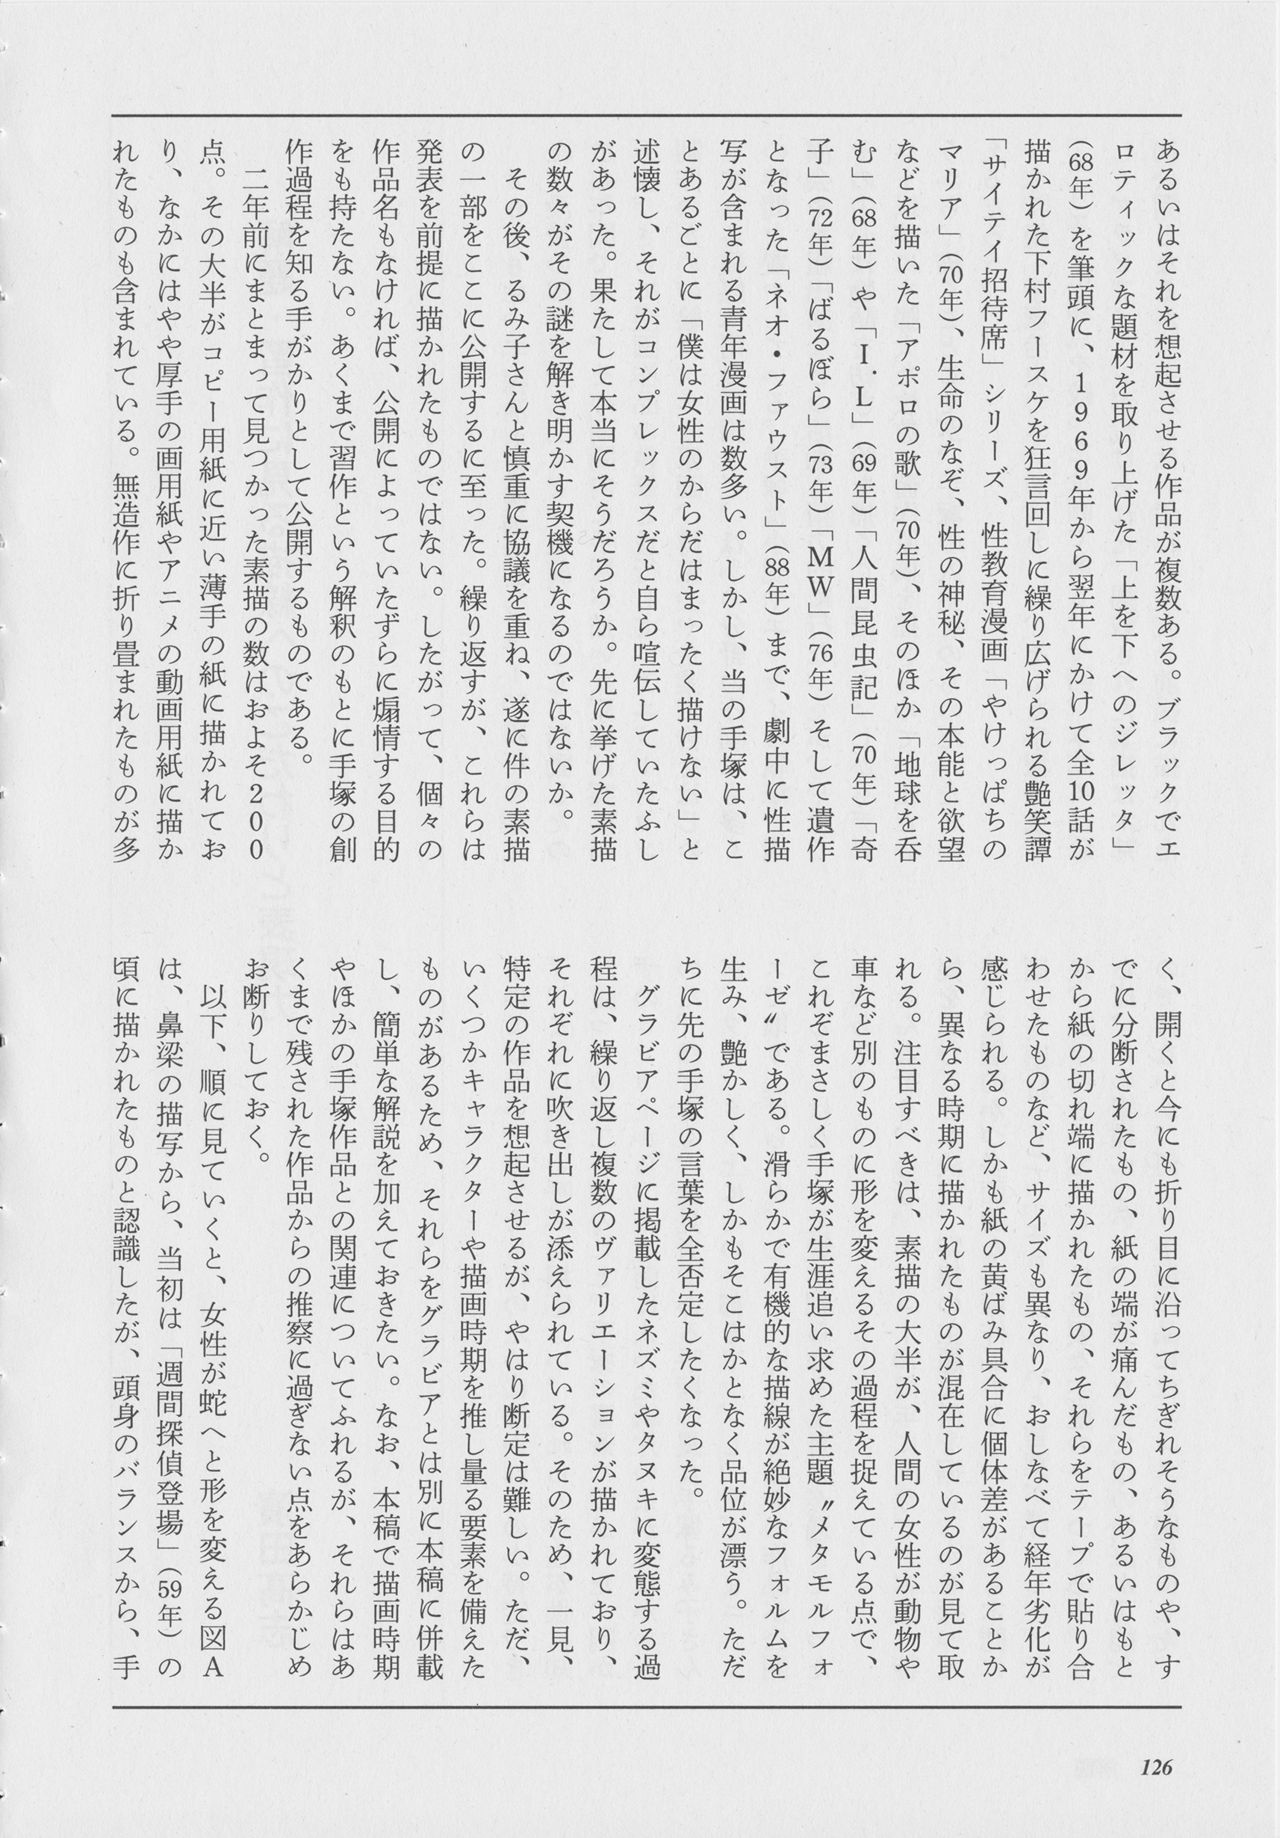 あるいはそれを想起させる作品が複数ある。ブラックでエ
ロティックな題材を取り上げた「上を下へのジレッタ」
（68年）を筆頭に、1969年から翌年にかけて全10話が
描かれた下村フースケを狂言回しに繰り広げられる艶笑譚
「サイテイ招待席」シリーズ、性教育漫画「やけっぱちの
マリア」（70年）、生命のなぞ、性の神秘、その本能と欲望
などを描いた「アポロの歌」（70年）、そのほか「地球を呑
む」（68年）や「I.L」（69年）「人間昆虫記」（70年）「奇
子」（72年）「ばるぼら」（73年）「MW」（76年）そして遺作
となった「ネオ・ファウスト」（88年）まで、劇中に性描
写が含まれる青年漫画は数多い。しかし、当の手塚は、こ
とあるごとに「僕は女性のからだはまったく描けない」と
述懐し、それがコンプレックスだと自ら喧伝していたふし
があった。果たして本当にそうだろうか。先に挙げた素描
の数々がその謎を解き明かす契機になるのではないか。
　その後、るみ子さんと慎重に協議を重ね、遂に件の素描
の一部をここに公開するに至った。繰り返すが、これらは
発表を前提に描かれたものではない。したがって、個々の
作品名もなければ、公開によっていたずらに煽情する目的
をも持たない。あくまで習作という解釈のもとに手塚の創
作過程を知る手がかりとして公開するものである。
　二年前にまとまって見つかった素描の数はおよそ200
点。その大半がコピー用紙に近い薄手の紙に描かれてお
り、なかにはやや厚手の画用紙やアニメの動画用紙に描か
れたものも含まれている。無造作に折り畳まれたものが多
く、開くと今にも折り目に沿ってちぎれそうなものや、す
でに分断されたもの、紙の端が痛んだもの、あるいはもと
から紙の切れ端に描かれたもの、それらをテープで貼り合
わせたものなど、サイズも異なり、おしなべて経年劣化が
感じられる。しかも紙の黄ばみ具合に個体差があることか
ら、異なる時期に描かれたものが混在しているのが見て取
れる。注目すべきは、素描の大半が、人間の女性が動物や
車など別のものに形を変えるその過程を捉えている点で、
これぞまさしく手塚が生涯追い求めた主題〝メタモルフォ
ーゼ〟である。滑らかで有機的な描線が絶妙なフォルムを
生み、艶かしく、しかもそこはかとなく品位が漂う。ただ
ちに先の手塚の言葉を全否定したくなった。
　グラビアページに掲載したネズミやタヌキに変態する過
程は、繰り返し複数のヴァリエーションが描かれており、
それぞれに吹き出しが添えられている。そのため、一見、
特定の作品を想起させるが、やはり断定は難しい。ただ、
いくつかキャラクターや描画時期を推し量る要素を備えた
ものがあるため、それらをグラビアとは別に本稿に併載
し、簡単な解説を加えておきたい。なお、本稿で描画時期
やほかの手塚作品との関連についてふれるが、それらはあ
くまで残された作品からの推察に過ぎない点をあらかじめ
お断りしておく。
　以下、順に見ていくと、女性が蛇へと形を変える図A
は、鼻梁の描写から、当初は「週間探偵登場」（59年）の
頃に描かれたものと認識したが、頭身のバランスから、手
126